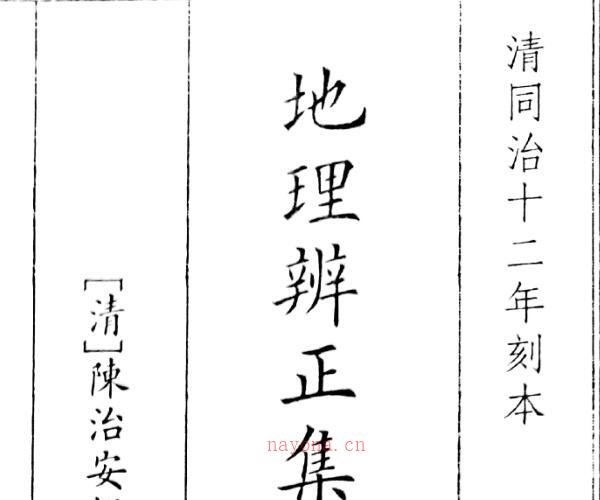 清同治十二年刻本
地理辨正集
[清]陳治安
nayona.cn